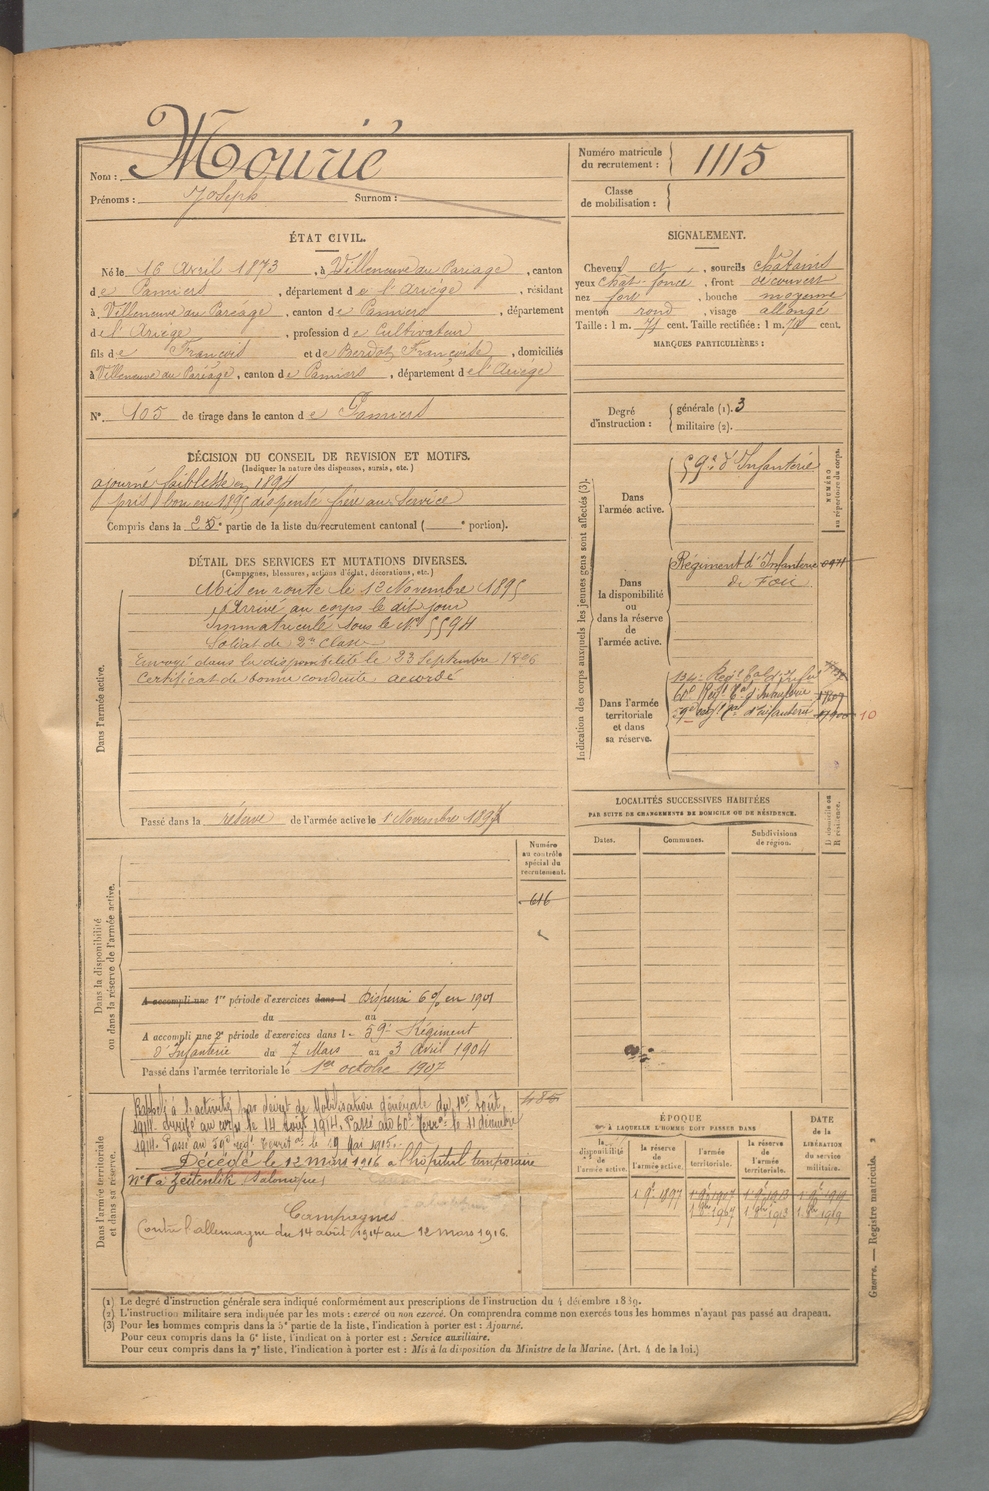 Nom : Mourié
Prénoms : Joseph Surnom :
Numéro matricule du recrutement : 1115
Classe de mobilisation :
ÉTAT CIVIL.
Né le 16 Avril 1873, à Villeneuve du Paréage, canton
de Pamiers, département de l'Ariège, résidant
à Villeneuve du Paréage, canton de Pamiers, département
de l'Ariège, profession de Cultivateur
fils de François et de Berdot Françoise, domiciliés
à Villeneuve du Paréage, canton de Pamiers, département de l'Ariège
N° 105 de tirage dans le canton de Pamiers
SIGNALEMENT.
Cheveux et, sourcils châtains
yeux chât-foncé, front découvert
nez fort, bouche moyenne
menton rond, visage allongé
Taille : 1 m. 71 cent. Taille rectifiée : 1 m. cent.
MARQUES PARTICULIÈRES :
Degré d'instruction : générale (1). 3
militaire (2).
DÉCISION DU CONSEIL DE REVISION ET MOTIFS.
(Indiquer la nature des dispenses, sursis, etc.)
ajourné faiblesse en 1894
pris bon en 1895 dispensé frère au Service
Compris dans la 2e partie de la liste du recrutement cantonal ( e portion).
DÉTAIL DES SERVICES ET MUTATIONS DIVERSES.
(Campagnes, blessures, actions d'éclat, décorations, etc.)
Dans l'armée active.
Mis en route le 12 Novembre 1895
Arrivé au corps le dit jour
Immatriculé sous le No 5594
Soldat de 2e classe
Envoyé dans la disponibilité le 23 Septembre 1896
Certificat de bonne conduite accordé
Passé dans la réserve de l'armée active le 1 Novembre 1897
Indication des corps auxquels les jeunes gens sont affectés (3).
NUMÉRO au répertoire du corps.
Dans l'armée active.
59e d'Infanterie
Dans la disponibilité ou dans la réserve de l'armée active.
Régiment d'Infanterie
de Foix
Dans l'armée territoriale et dans sa réserve.
134e Regt Tal d'Infie
60e Regt Tal d'Infanterie
59e Regt Tal d'Infanterie 10
LOCALITÉS SUCCESSIVES HABITÉES
PAR SUITE DE CHANGEMENTS DE DOMICILE OU DE RÉSIDENCE.
Dates. Communes. Subdivisions de région. Domicile ou Résidence.
Dans la disponibilité ou dans la réserve de l'armée active.
Numéro au contrôle spécial du recrutement.
616
A accompli une 1re période d'exercices dans l Dispensé 6% en 1901
du au
A accompli une 2e période d'exercices dans l e 59e Régiment
d'Infanterie du 7 Mars au 3 avril 1904
Passé dans l'armée territoriale le 1er octobre 1907
Dans l'armée territoriale et dans sa réserve.
Rappelé à l'activité par décret de Mobilisation Générale du 1er Août
1914. Arrivé au corps le 14 Août 1914. Passé au 60e Terral le 11 décembre
1914. Passé au 59e rég. Territal le 29 Mai 1915.
Décédé le 12 mars 1916 à l'hôpital temporaire
n°1 à Zeitenlik (Salonique)
Campagnes
Contre l'allemagne du 14 août 1914 au 12 mars 1916.
ÉPOQUE
À LAQUELLE L'HOMME DOIT PASSER DANS
la disponibilité de l'armée active. la réserve de l'armée active. l'armée territoriale. la réserve de l'armée territoriale. DATE de la LIBÉRATION du service militaire.
1 9e 1897 1 9e 1907 1 9e 1913 1 9e 1919
1 8bre 1907 1 8bre 1913 1 8bre 1919
(1) Le degré d'instruction générale sera indiqué conformément aux prescriptions de l'instruction du 4 décembre 1889.
(2) L'instruction militaire sera indiquée par les mots : exercé ou non exercé. On comprendra comme non exercés tous les hommes n'ayant pas passé au drapeau.
(3) Pour les hommes compris dans la 5e partie de la liste, l'indication à porter est : Ajourné.
Pour ceux compris dans la 6e liste, l'indication à porter est : Service auxiliaire.
Pour ceux compris dans la 7e liste, l'indication à porter est : Mis à la disposition du Ministre de la Marine. (Art. 4 de la loi.)
Guerre. — Registre matricule. 2